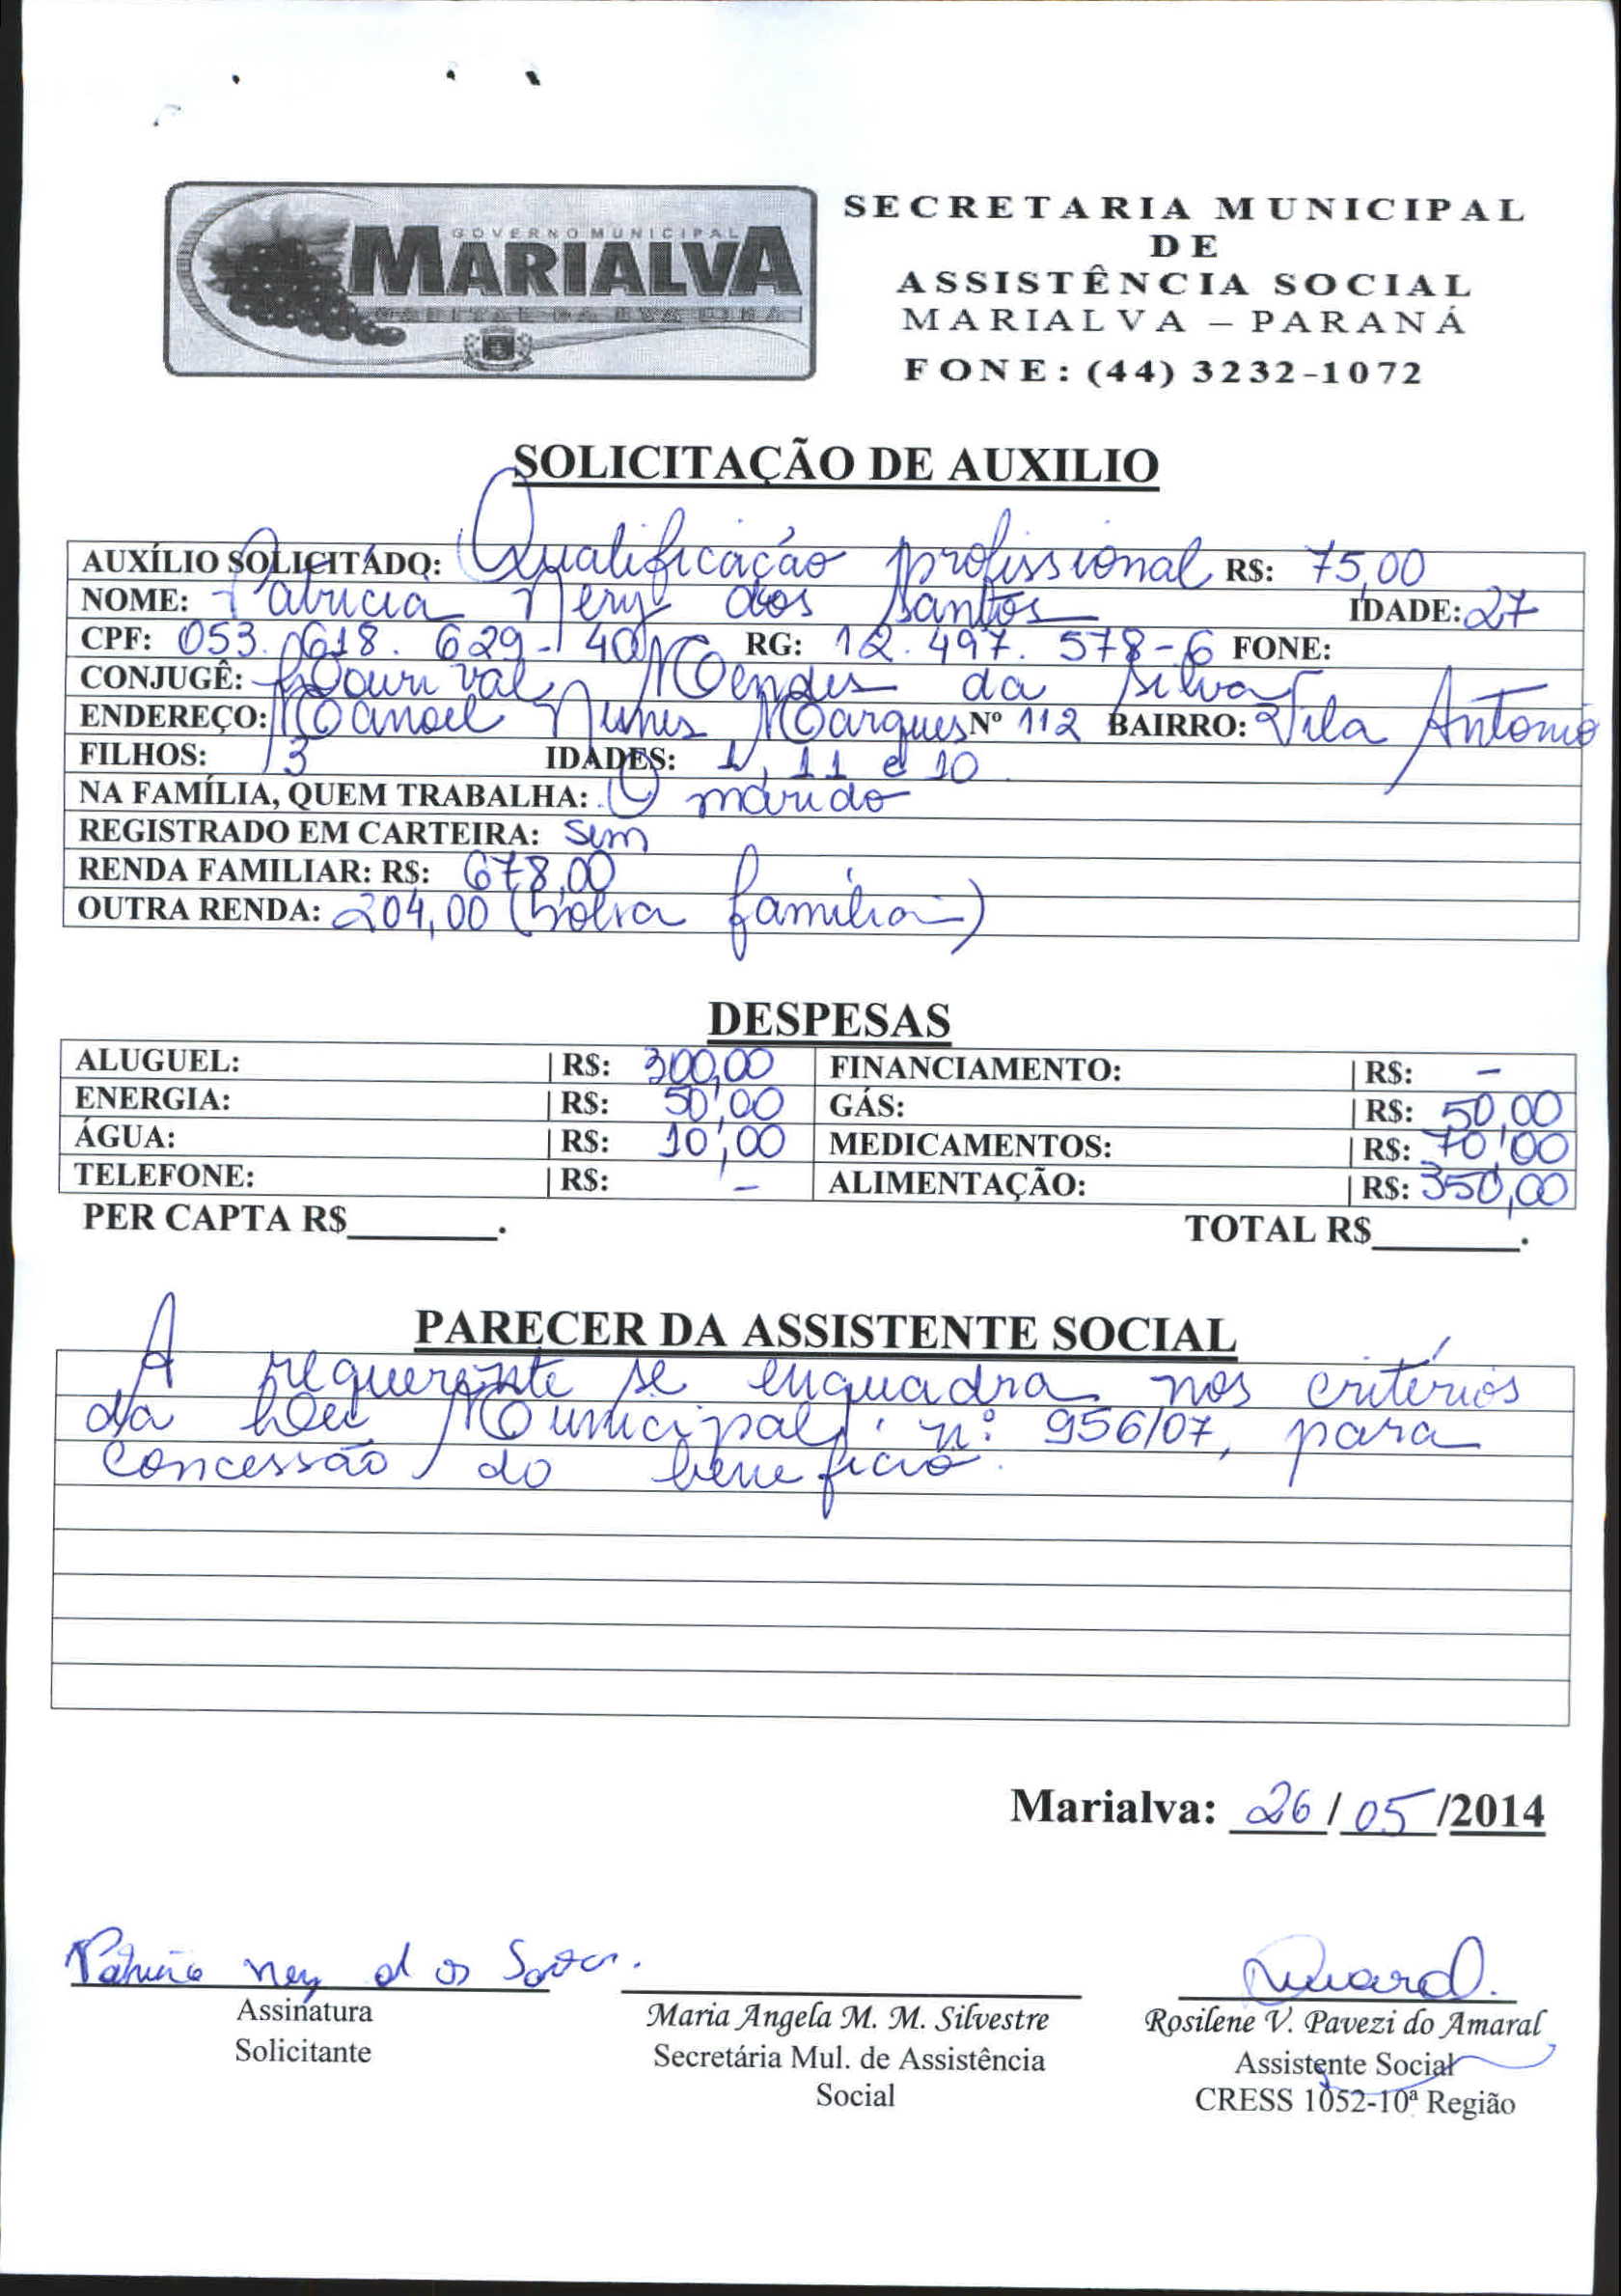 GOVERNO MUNICIPAL
MARIALVA
CAPITAL DA UVA FINA
SECRETARIA MUNICIPAL
DE
ASSISTÊNCIA SOCIAL
MARIALVA – PARANÁ
FONE: (44) 3232-1072
SOLICITAÇÃO DE AUXILIO
AUXÍLIO SOLICITADO: Qualificação profissional R$: 75,00
NOME: Patricia Nery dos Santos IDADE: 27
CPF: 053.618.629-40 RG: 12.497.578-6 FONE:
CONJUGÊ: Lourival Mendes da Silva
ENDEREÇO: Manoel Nunes Marques Nº 112 BAIRRO: Vila Antonio
FILHOS: 3 IDADES: 1, 11 e 10
NA FAMÍLIA, QUEM TRABALHA: O marido
REGISTRADO EM CARTEIRA: Sim
RENDA FAMILIAR: R$: 678,00
OUTRA RENDA: 204,00 (bolsa família)
DESPESAS
ALUGUEL: | R$: 300,00 FINANCIAMENTO: | R$: -
ENERGIA: | R$: 50,00 GÁS: | R$: 50,00
ÁGUA: | R$: 10,00 MEDICAMENTOS: | R$: 70,00
TELEFONE: | R$: - ALIMENTAÇÃO: | R$: 350,00
PER CAPTA R$________. TOTAL R$________.
PARECER DA ASSISTENTE SOCIAL
A requerente se enquadra nos critérios
da Lei Municipal nº 956/07, para
concessão do benefício.
Marialva: 26/05/2014
Patricia Nery dos Santos.
Assinatura
Solicitante
Maria Angela M. M. Silvestre
Secretária Mul. de Assistência
Social
Rosilene V. Pavezi do Amaral
Assistente Social
CRESS 1052-10ª Região